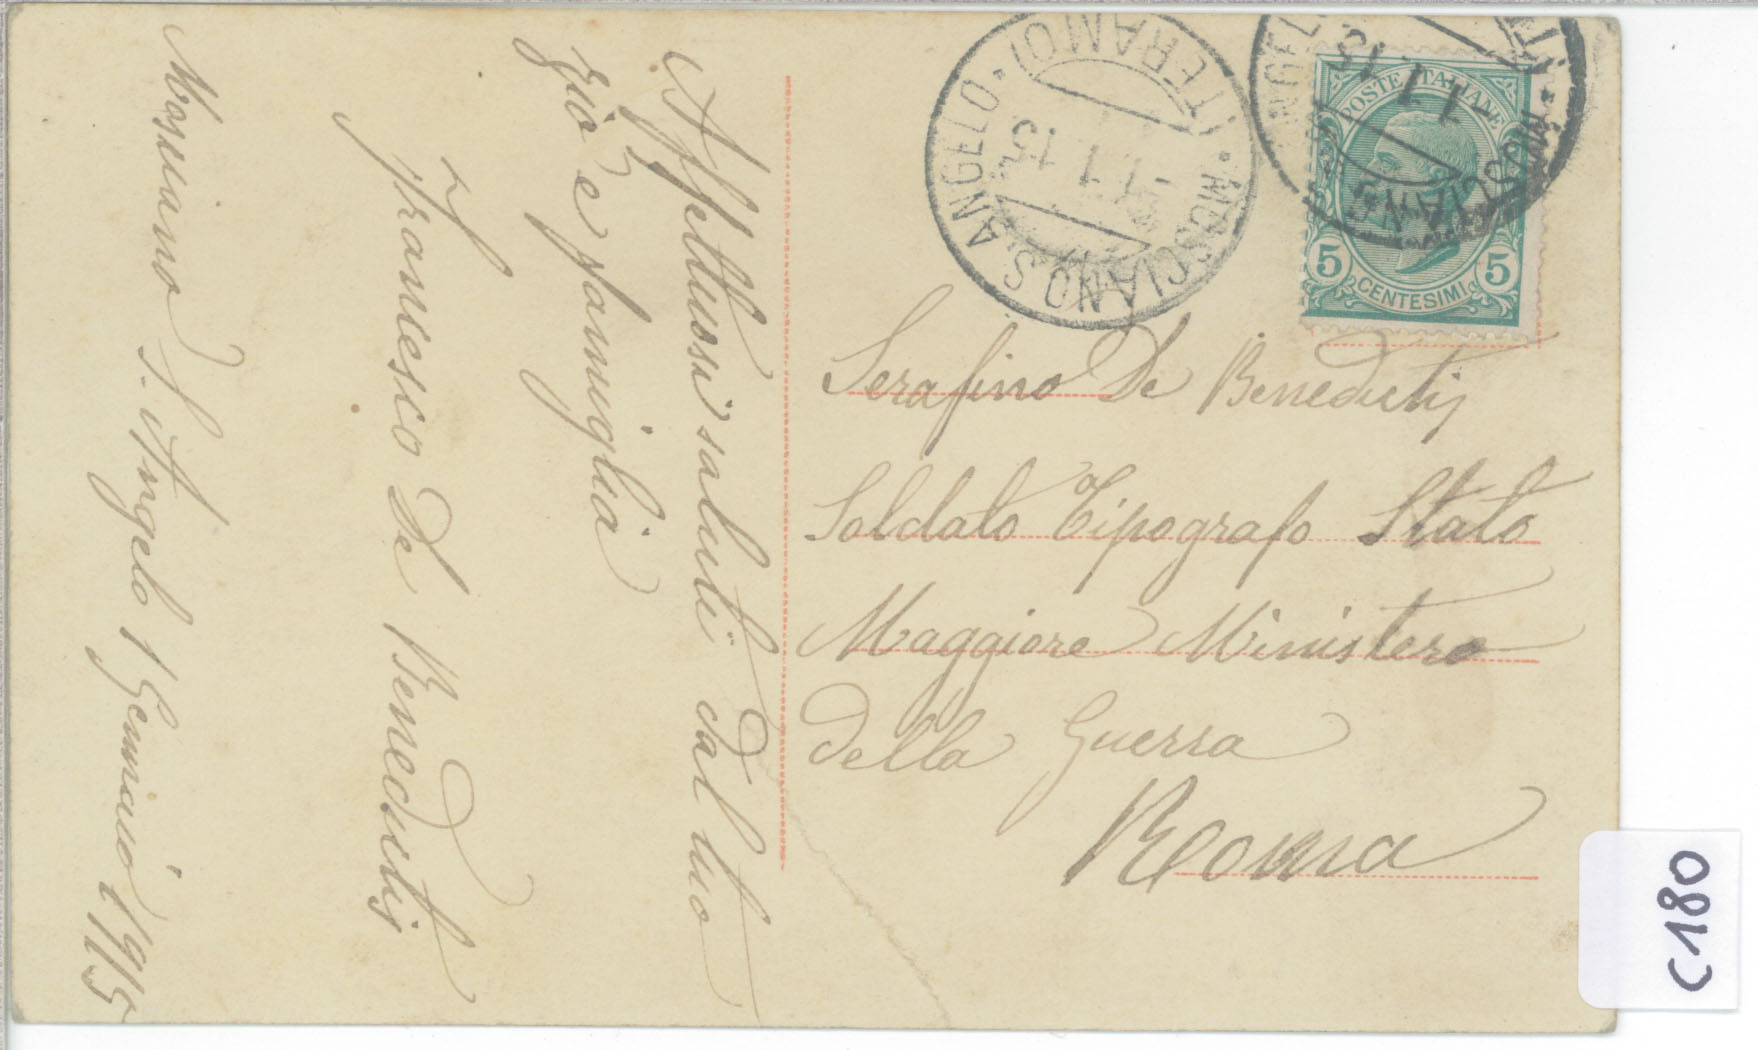 Affettuosi saluti dal tuo
zio e famiglia
Francesco De Benedictis
Mosciano S. Angelo 1 Gennaio 1915
MOSCIANO S. ANGELO
(TERAMO)
1.1.15
MOSCIANO S. ANGEL
1.1.15
POSTE ITALIANE
5 5
CENTESIMI
Serafino De Benedictis
Soldato Tipografo Stato
Maggiore Ministero
della Guerra
Roma
C180